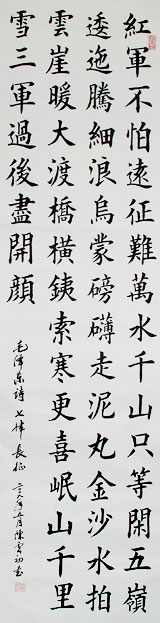 紅軍不怕遠征難萬水千山只等閑五嶺
逶迤騰細浪烏蒙磅礴走泥丸金沙水拍
雲崖暖大渡橋橫銕索寒更喜岷山千里
雪三軍過後盡開顏
毛澤東詩七律長征